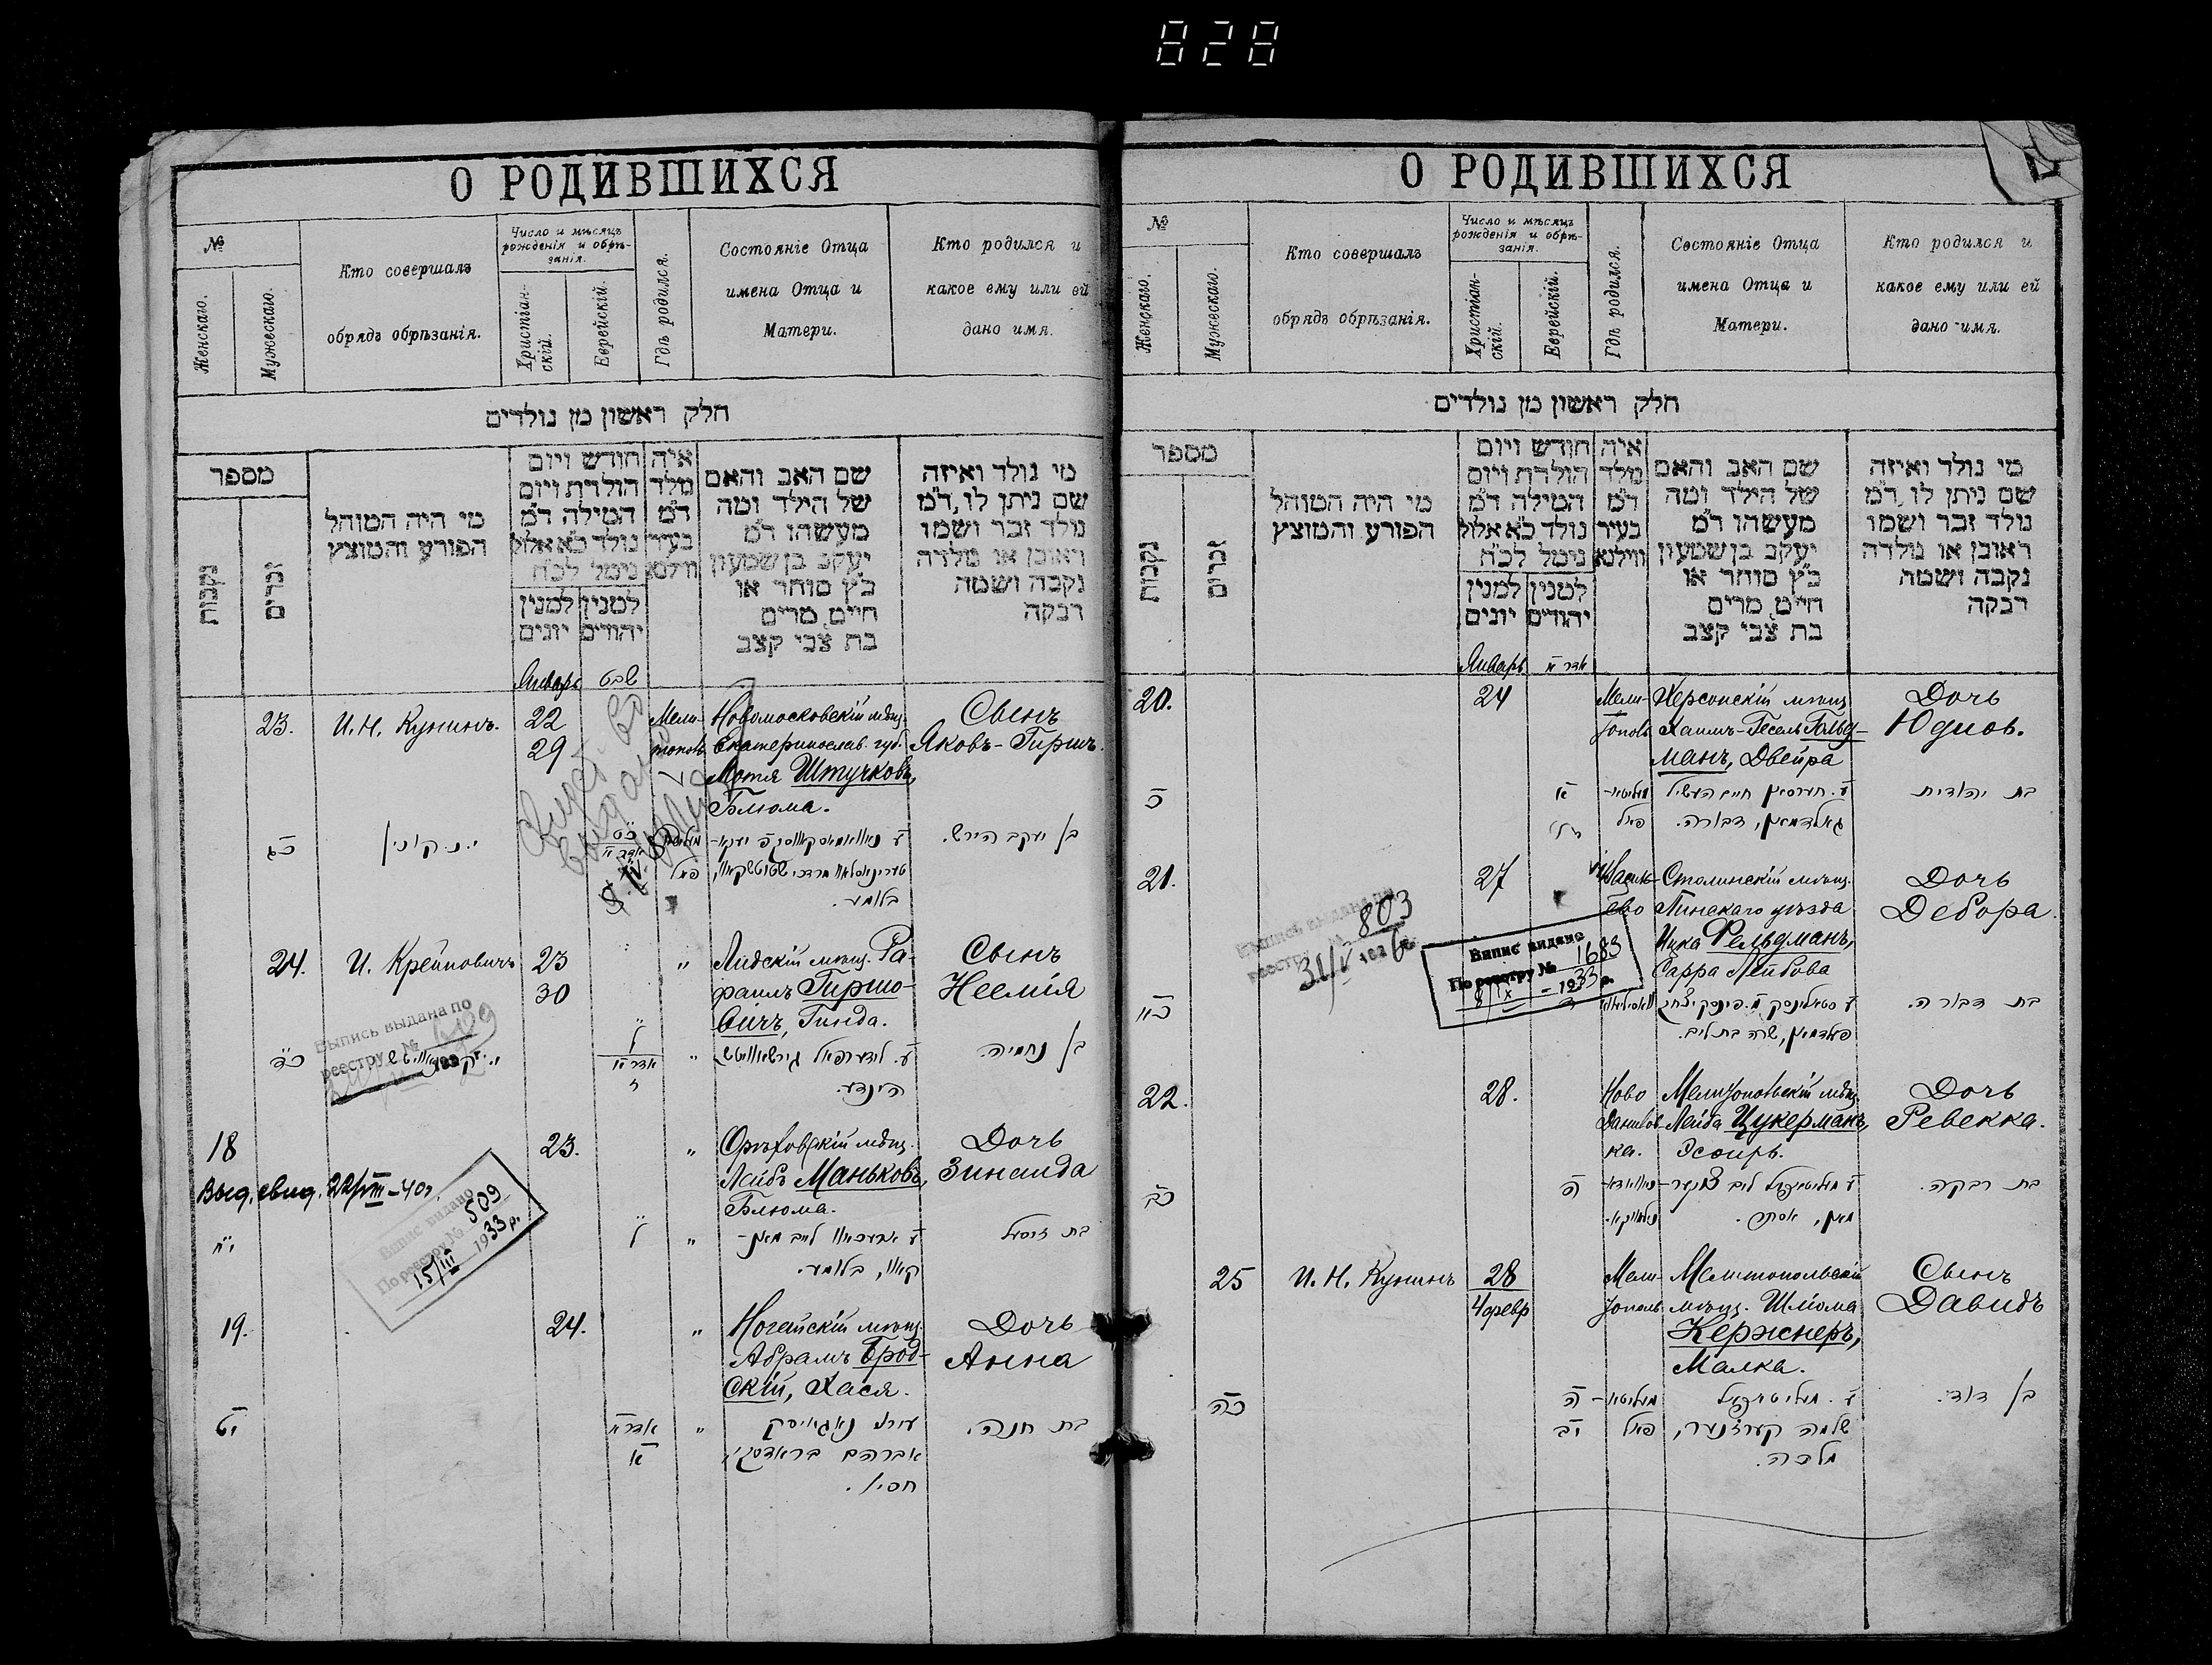 828
О РОДИВШИХСЯ
№
Женскаго.
Мужескаго.
Кто совершалъ
обрядъ обрѣзанія.
Число и мѣсяцъ
рожденія и обрѣ-
занія.
Христіан-
скій.
Еврейскій.
Гдѣ родился.
Состояніе Отца
имена Отца и
Матери.
Кто родился и
какое ему или ей
дано имя.
חלק ראשון מן נולדים
מספר
נקבות
זכרים
מי היה המוהל
הפורע והמוצץ
חודש ויום
הולדת ויום
המילה ד״מ
נולד כ״א אלול
נימל לכ״ח
למנין למנין
יהודים יונים
איה
מלד
ד״מ
בעיר
ווילנא
שם האב והאם
של הילד ומה
מעשהו ד״מ
יעקב בן שמעון
כ״ץ סוחר או
חייט, מרים
בת צבי קצב
מי נולד ואיזה
שם ניתן לו, ד״מ
נולד זכר ושמו
ראובן או נולדה
נקבה ושמה
רבקה
Январь שבט
23. И. Н. Кунинъ. 22 Мели- Новомосковскій мѣщ. Сынъ
29 тополь Екатеринослав. губ. Яковъ-Гиршъ.
Мотя Штучковъ,
Блюма.
כג י. נ. קונין כט בן יעקב הירש.
אדר א פאל מרדכי שטוטשקאוו,
בלומע.
24. И. Крейновичъ 23 " Лидскій мѣщ. Ра- Сынъ
30 фаилъ Гиршо- Неемія
вичъ, Гинда.
Выпись выдана по
реестру №
כד ל " בן נחמיה.
אדר א
ז הינדע.
18 23. " Орѣховскій мѣщ. Дочь
Лейбъ Маньковъ, Зинаида
Блюма.
Выд. свид. 22/VIII-40г.
Випис видано
По реєстру № 509
15/III 1933 р.
יח ל " לייב מאן-
קאוו, בלומע.
19. 24. " Ногайскій мѣщ. Дочь
Абрамъ Брод- Анна
скій, Хася.
יט אדר א " בת חנה.
א אברהם בראדסקי,
חסיא.
О РОДИВШИХСЯ
№
Женскаго.
Мужескаго.
Кто совершалъ
обрядъ обрѣзанія.
Число и мѣсяцъ
рожденія и обрѣ-
занія.
Христіан-
скій.
Еврейскій.
Гдѣ родился.
Состояніе Отца
имена Отца и
Матери.
Кто родился и
какое ему или ей
дано имя.
חלק ראשון מן נולדים
מספר
נקבות
זכרים
מי היה המוהל
הפורע והמוצץ
חודש ויום
הולדת ויום
המילה ד״מ
נולד כ״א אלול
נימל לכ״ח
למנין למנין
יהודים יונים
איה
מלד
ד״מ
בעיר
ווילנא
שם האב והאם
של הילד ומה
מעשהו ד״מ
יעקב בן שמעון
כ״ץ סוחר או
חייט, מרים
בת צבי קצב
מי נולד ואיזה
שם ניתן לו, ד״מ
נולד זכר ושמו
ראובן או נולדה
נקבה ושמה
רבקה
Январь אדר א
20. 24 Мели- Херсонскій мѣщ. Дочь
тополь Хаимъ-Гесель Гольд- Юдиѳь.
манъ, Двейра
כ א מעליטא- בת יהודית
פאל גאלדמאן, דבורה.
21. 27 Столинскій мѣщ. Дочь
Пинскаго уѣзда Дебора.
Ицка Фельдманъ,
Сарра Лейбова
реестру № 803
Випис видано
По реєстру № 1683
8/IX - 1933 р.
כא ד בת דבורה.
פעלדמאן, שרה בת לייב.
22. 28. Ново Мелитопольскій мѣщ. Дочь
Данилов- Лейба Цукерманъ, Ревекка.
ка. Эсѳирь.
כב ה בת רבקה.
מאן, אסתר.
25 И. Н. Кунинъ 28 Мели- Мелитопольскій Сынъ
4 февр тополь мѣщ. Шлйома Давидъ
Кержнеръ,
Малка.
כה ה מעליטא- בן דוד.
יב פאל שלמה קערזנער,
מלכה.